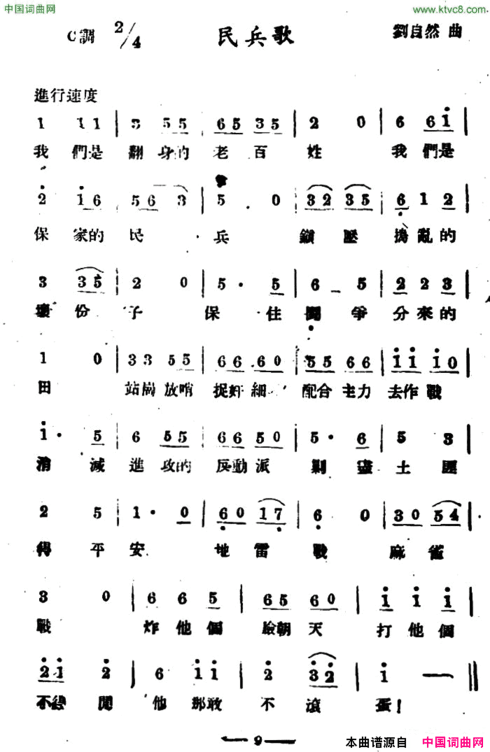 中国词曲网 www.ktvc8.com
C調 2/4 民兵歌 劉自然 曲
進行速度
1 1 1 | 3 5 5 | 6 5 3 5 | 2 0 | 6 6 1 |
我們是 翻身的 老百姓 我們是
2 1 6 | 5 6 3 | 5 . 0 | 3 2 3 5 | 6 1 2 |
保家的 民 兵 鎮壓 搗亂的
3 3 5 | 2 0 | 5 · 5 | 6 · 5 | 2 2 3 |
壞份子 保住 鬪爭 分來的
1 0 | 3 3 5 5 | 6 6 6 0 | 5 5 6 6 | 1 1 1 0 |
田 站崗放哨 捉奸細 配合主力 去作戰
1 · 5 | 6 5 5 | 6 6 5 0 | 5 · 6 | 5 3 |
消滅 進攻的 反動派 剿盡 土匪
2 5 | 1 · 0 | 6 0 1 7 | 6 0 | 3 0 5 4 |
得平安 地雷 戰 麻雀
3 0 | 6 6 5 | 6 5 6 0 | 1 1 1 |
戰 炸他個 臉朝天 打他個
2 1 2 | 6 1 1 | 2 3 2 | 1 0 ‖
不 他那敢 不滾蛋！
— 9 —
本曲谱源自 中国词曲网